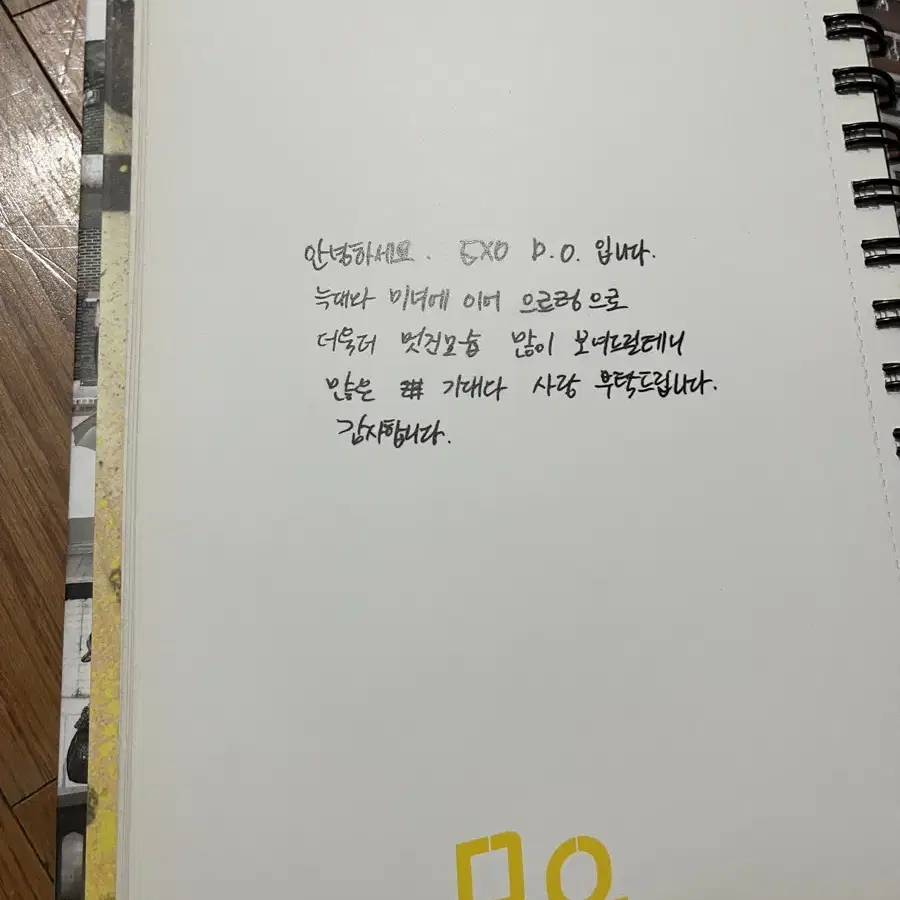 안녕하세요. EXO D.O. 입니다.
늑대와 미녀에 이어 으르렁으로
더욱더 멋진모습 많이 보여드릴테니
많은 기대와 사랑 부탁드립니다.
감사합니다.